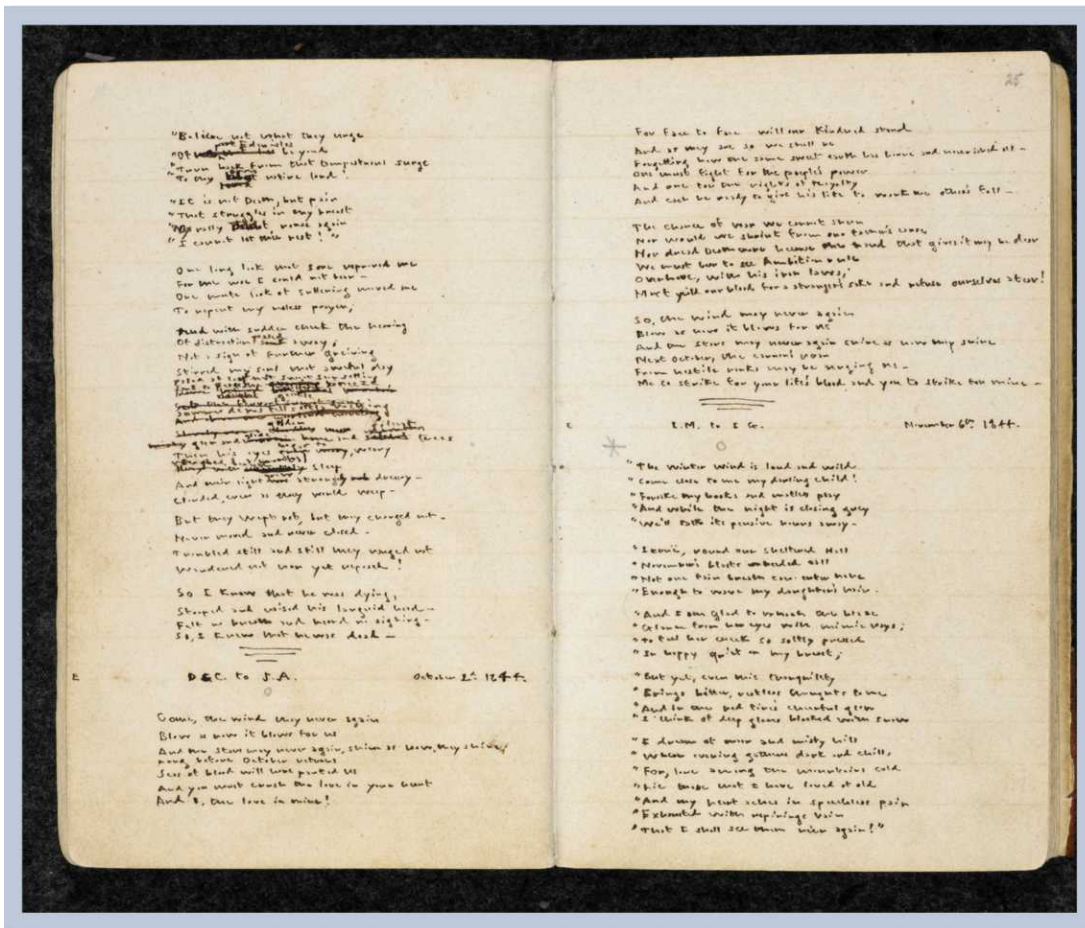 25
"Believe not what they urge
"Of Edernisles beyond
"Turn back from that tempestuous surge
"To thy native land!
"It is not Death, but pain
"That struggles in thy breast
"Nay rally rouse again
"I cannot let thee rest!"
One long look that sore reproved me
For the woe I could not bear -
One mute look of suffering moved me
To repent my useless prayer;
And with sudden check the heaving
Of distraction passed away;
Not a sign of further greiving
Stirred my soul that awful day
golden
glen and trees
Then his eyes began to weary
sleep
And their light grew strangely dreary -
Clouded, even as they would weep -
But they wept not, but they changed not -
Never moved and never closed -
Troubled still and still they ranged not
Wandered not nor yet reposed!
So I knew that he was dying,
Stooped and raised his languid head -
Felt no breath and heard no sighing -
So, I knew that he was dead -
E D.G.C. to J.A. October 2d 1844.
Come, the wind may never again
Blow as now it blows for us
And the stars may never again, shine as now they shine;
Long before October returns
Seas of blood will have parted us
And you must crush the love in your heart
And I, the love in mine!
For face to face will our Kindred stand
And as they are so we shall be
Forgetting how the same sweet earth has borne and nourished all -
One must fight for the people's power
And one for the rights of Royalty
And each be ready to give his life to work the other's fall -
The chance of war we cannot shun
Nor would we shrink from our fathers' cause
Nor dread Death more because the hand that gives it may be dear
We must bear to see Ambition rule
Over Love, with his iron laws;
Must yield our blood for a stranger's sake and refuse ourselves a tear!
So, the wind may never again
Blow as now it blows for us
And the stars may never again shine as now they shine
Next October, the cannon's roar
From hostile ranks may be urging us -
Me to strike for your life's blood and you to strike for mine -
E I.M. to I G. November 6th 1844.
"The winter wind is loud and wild
"Come close to me my darling child!
"Forsake thy books and mateless play
"And while the night is closing grey
"We'll talk its pensive hours away -
"Iernë, round our sheltered Hall
"November's blasts unheeded call
"Not one faint breath can enter here
"Enough to wave my daughter's hair -
"And I am glad to watch the blaze
"Glance from her eyes with mimic rays;
"To feel her cheek so softly pressed
"In happy quiet on my breast;
"But yet, even this tranquility
"Brings bitter, restless thoughts to me
"And in the red fire's cheerful glow
"I think of deep glens blocked with snow
"I dream of moor and misty hill
"Where evening gathers dark and chill,
"For, lone among the mountains cold
"Lie those that I have loved of old
"And my heart aches in speechless pain
"Exhausted with repinings vain
"That I shall see them never again!"